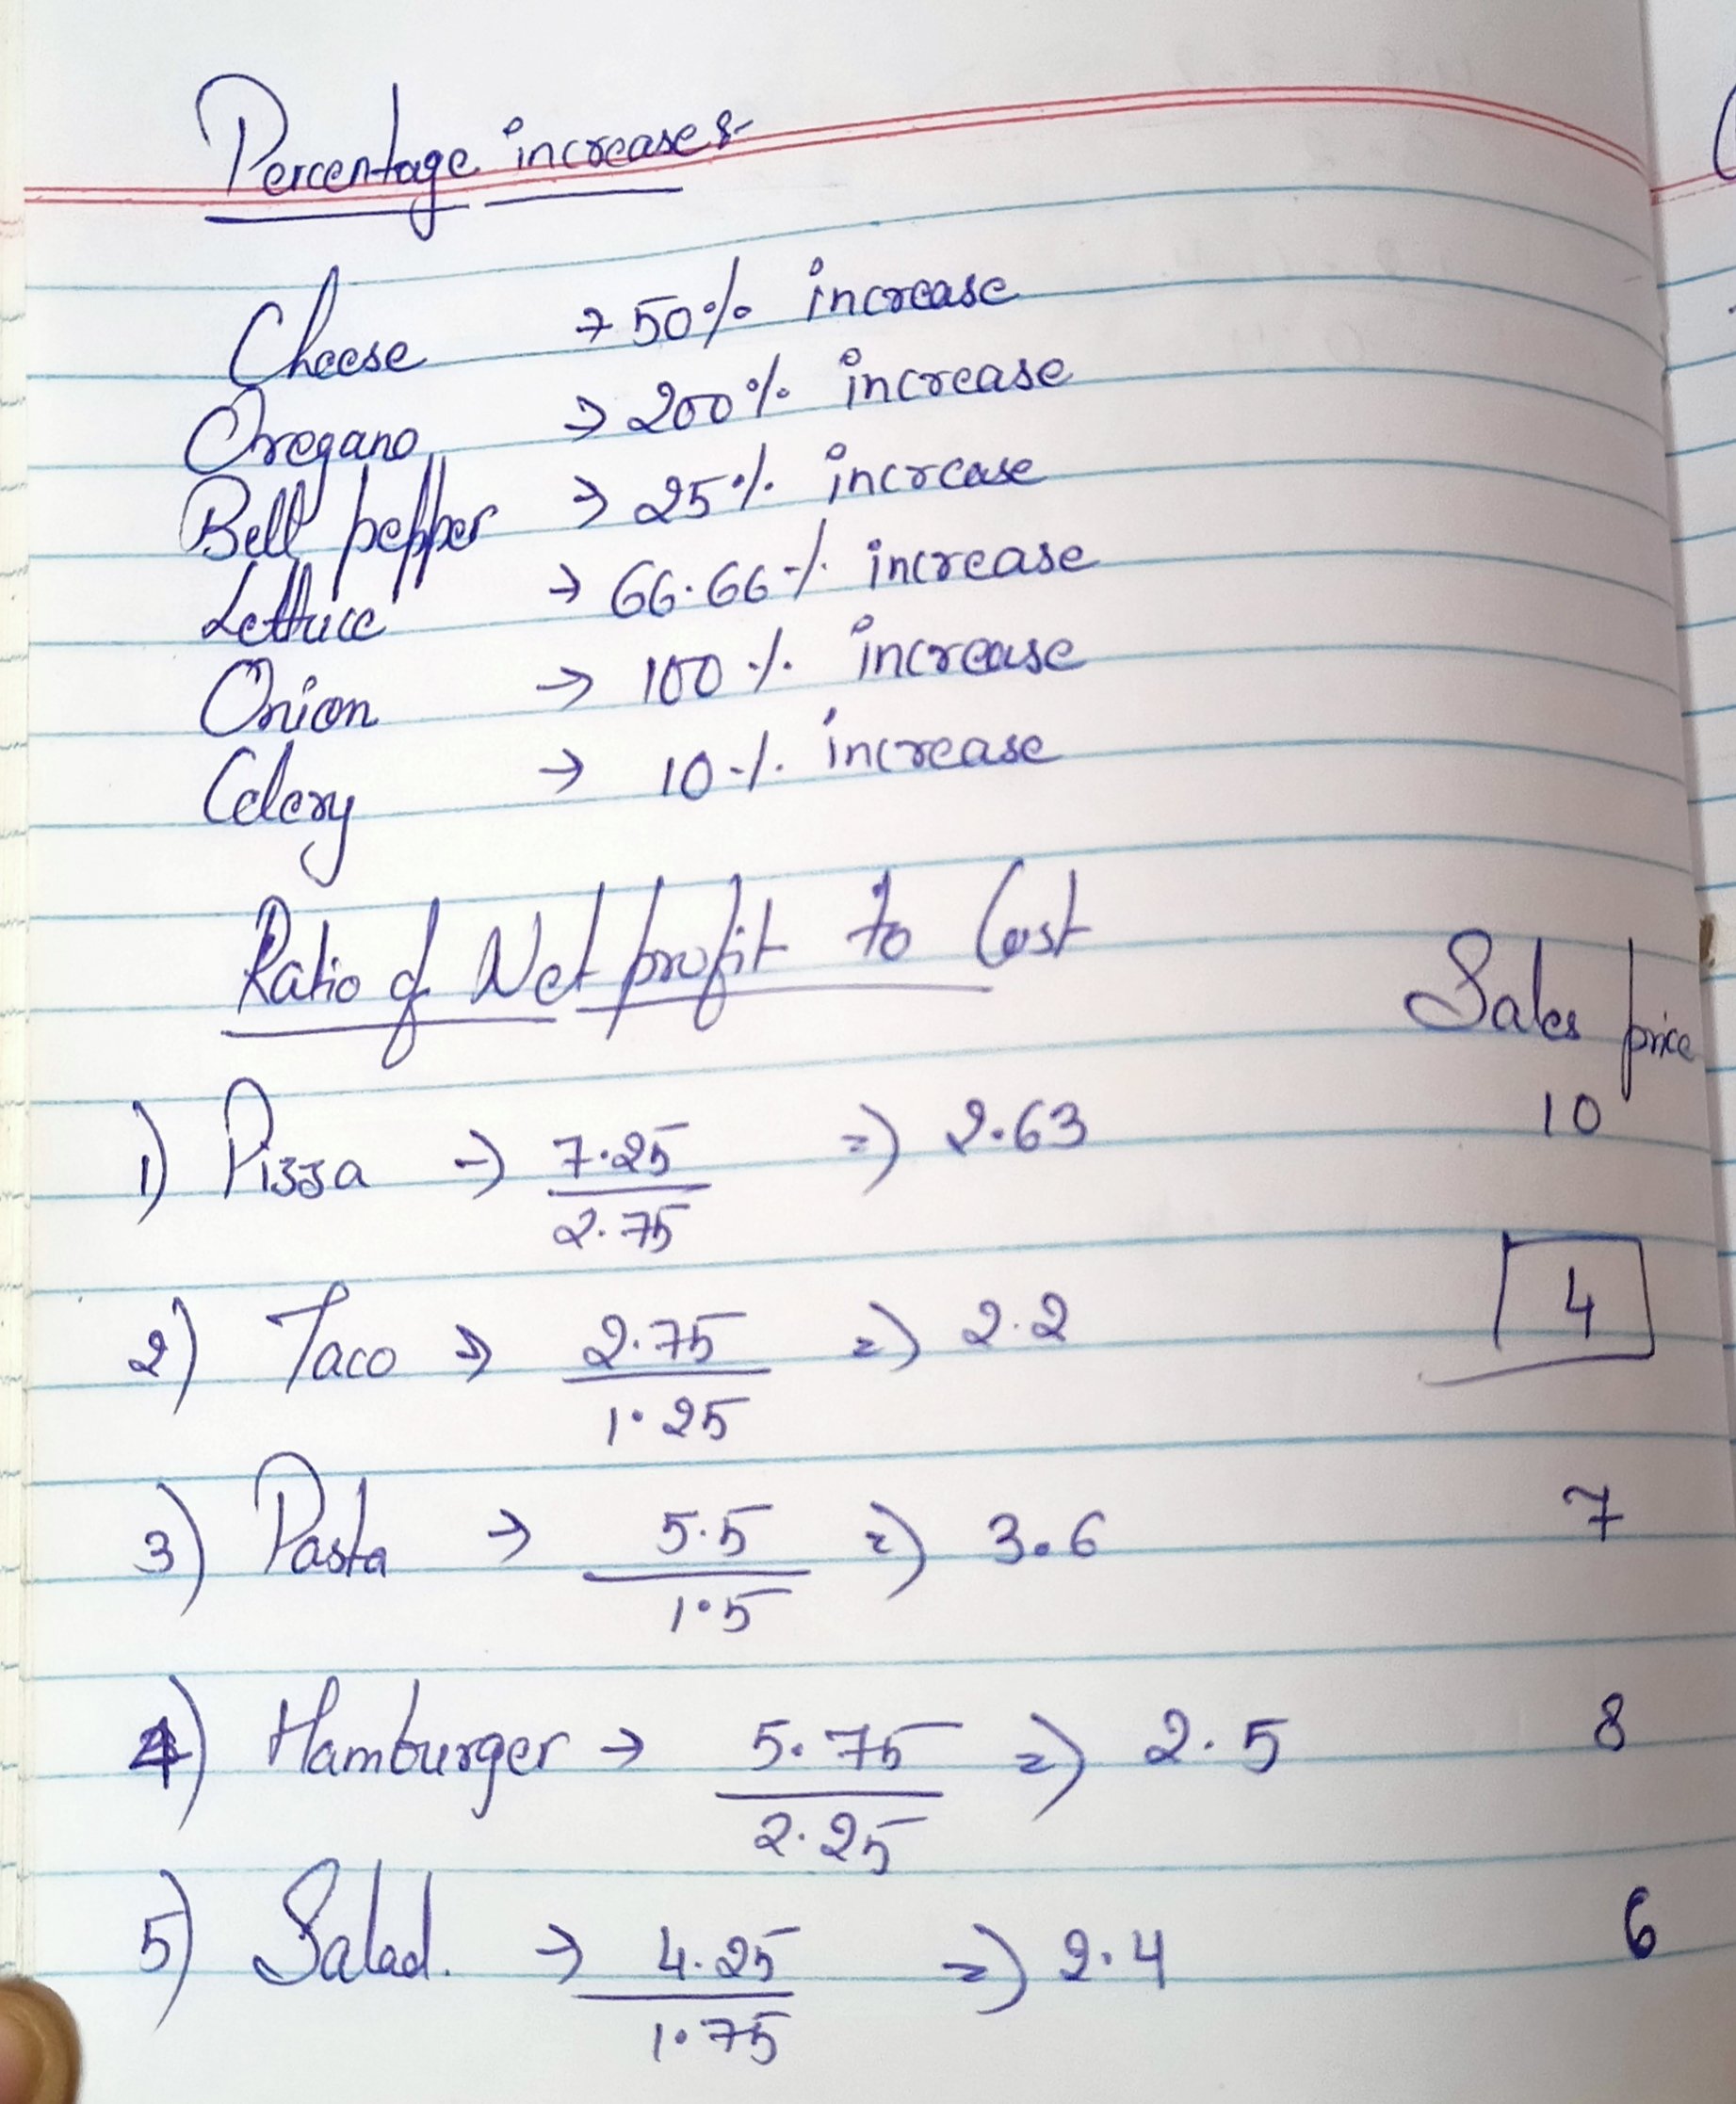 Percentage increases-
Cheese → 50% increase
Oregano → 200% increase
Bell pepper → 25% increase
Lettuce → 66.66% increase
Onion → 100% increase
Celery → 10% increase
Ratio of Net profit to Cost
Sales price
1) Pizza → 7.25/2.75 => 2.63 10
2) Taco → 2.75/1.25 => 2.2 4
3) Pasta → 5.5/1.5 => 3.6 7
4) Hamburger → 5.75/2.25 => 2.5 8
5) Salad. → 4.25/1.75 => 2.4 6